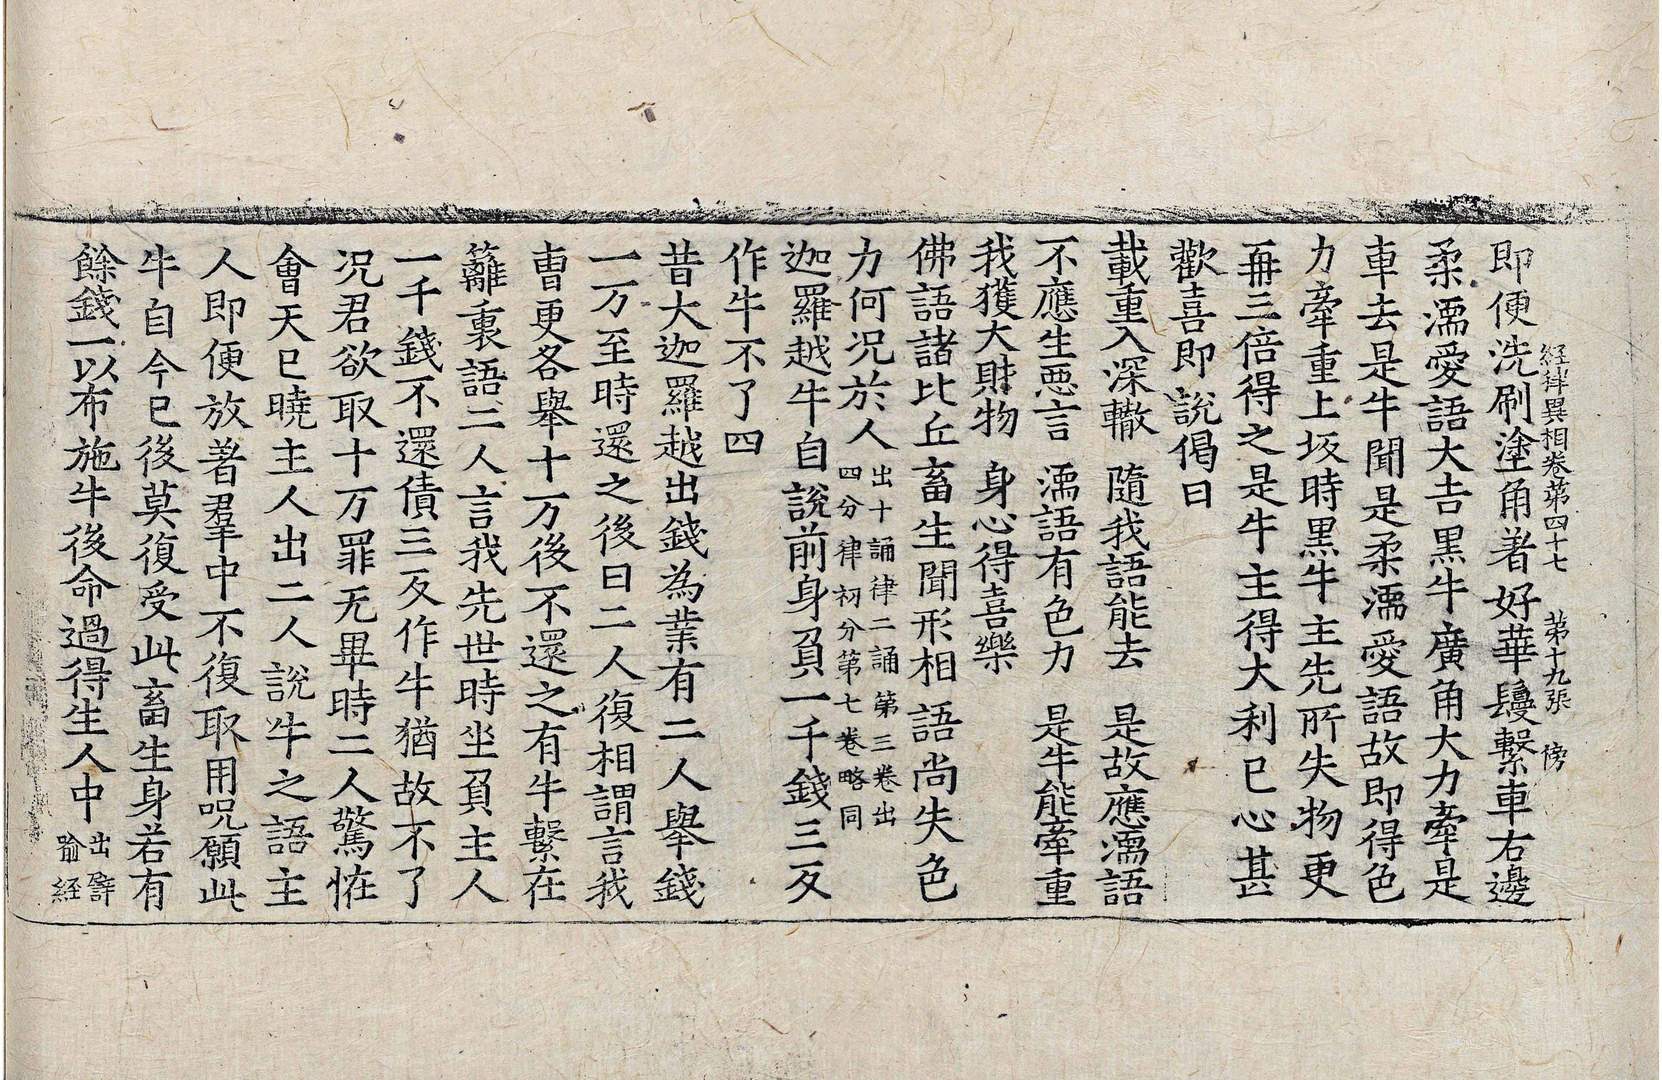 経律異相卷第四十七 第十九張 傍
即便洗刷塗角著好華鬘繫車右邊
柔濡愛語大吉黒牛廣角大力牽是
車去是牛聞是柔濡愛語故即得色
力牽重上坂時黒牛主先所失物更
再三倍得之是牛主得大利已心甚
歡喜即說偈曰
載重入深轍 隨我語能去 是故應濡語
不應生惡言 濡語有色力 是牛能牽重
我獲大財物 身心得喜樂
佛語諸比丘畜生聞形相語尚失色
力何況於人出十誦律二誦第三卷出
四分律初分第七卷略同
迦羅越牛自說前身負一千錢三反
作牛不了四
昔大迦羅越出錢為業有二人舉錢
一万至時還之後曰二人復相謂言我
曹更各舉十万後不還之有牛繫在
籬裏語二人言我先世時坐負主人
一千錢不還債三反作牛猶故不了
况君欲取十万罪无畢時二人驚恠
會天已曉主人出二人說牛之語主
人即便放著羣中不復取用呪願此
牛自今已後莫復受此畜生身若有
餘錢一以布施牛後命過得生人中出譬
喻経